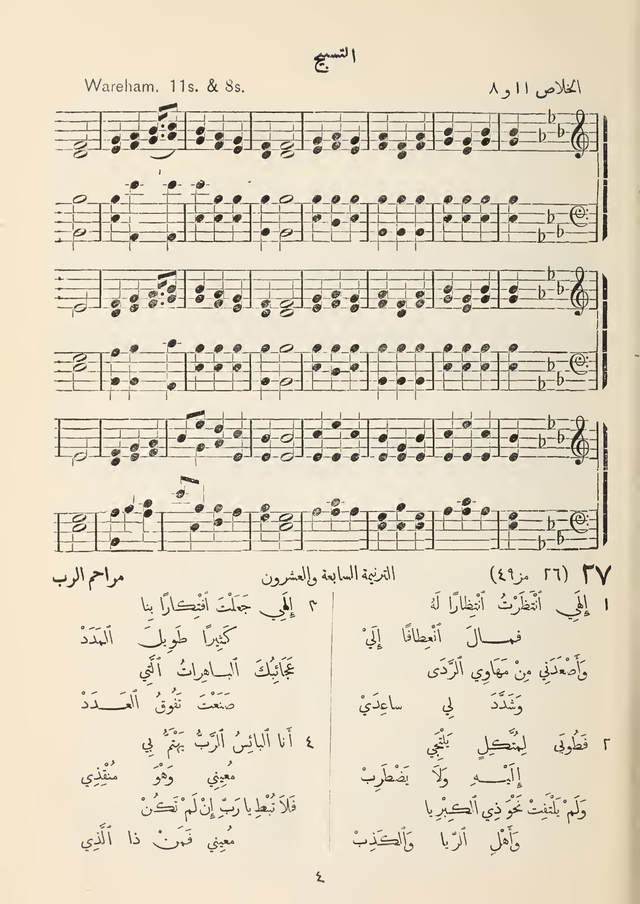 التسبيح
الخلاص ١١ و ٨
Wareham. 11s. & 8s.
٢٧ (٢٦ مز٤٩) الترنيمة السابعة والعشرون مراحم الرب
١ إِلٰهِي ٱنْتَظَرْتُ ٱنْتِظارًا لَهُ
فمــالَ ٱنْعِطافًا إِلَيّْ
وَأَصْعَدَنِي مِنْ مَهَاوِي ٱلرَّدَى
وَشَدَّدَ لِي ساعِدَيّْ
٢ فَطُوبَى لِمُتَّكِلٍ يَلْتَجِي
إِلَيْــهِ وَلَا يَضْطَرِبْ
وَلَمْ يَلْتَفِتْ نَحْوَ ذِي ٱلْكِبْرِيا
وَأَهْلِ ٱلرِّيا وَٱلْكَذِبْ
٣ إِلٰهِي جَعَلْتَ ٱفْتِكارًا بِنا
كَثِيرًا طَوِيلَ ٱلمَدَدْ
عَجَائِبُكَ ٱلبــاهِراتُ ٱلَّتِي
صَنَعْتَ تَفُوقُ ٱلعَــدَدْ
٤ أَنا ٱلبائِسُ ٱلرَّبُّ يَهْتَمُّ بِي
مُعِينِي وَهْوَ مُنْقِذِي
فَلَا تُبْطِ يا رَبِّ إِنْ لَمْ تَكُنْ
مُعِينِي فَمَنْ ذا ٱلَّذِي
٤